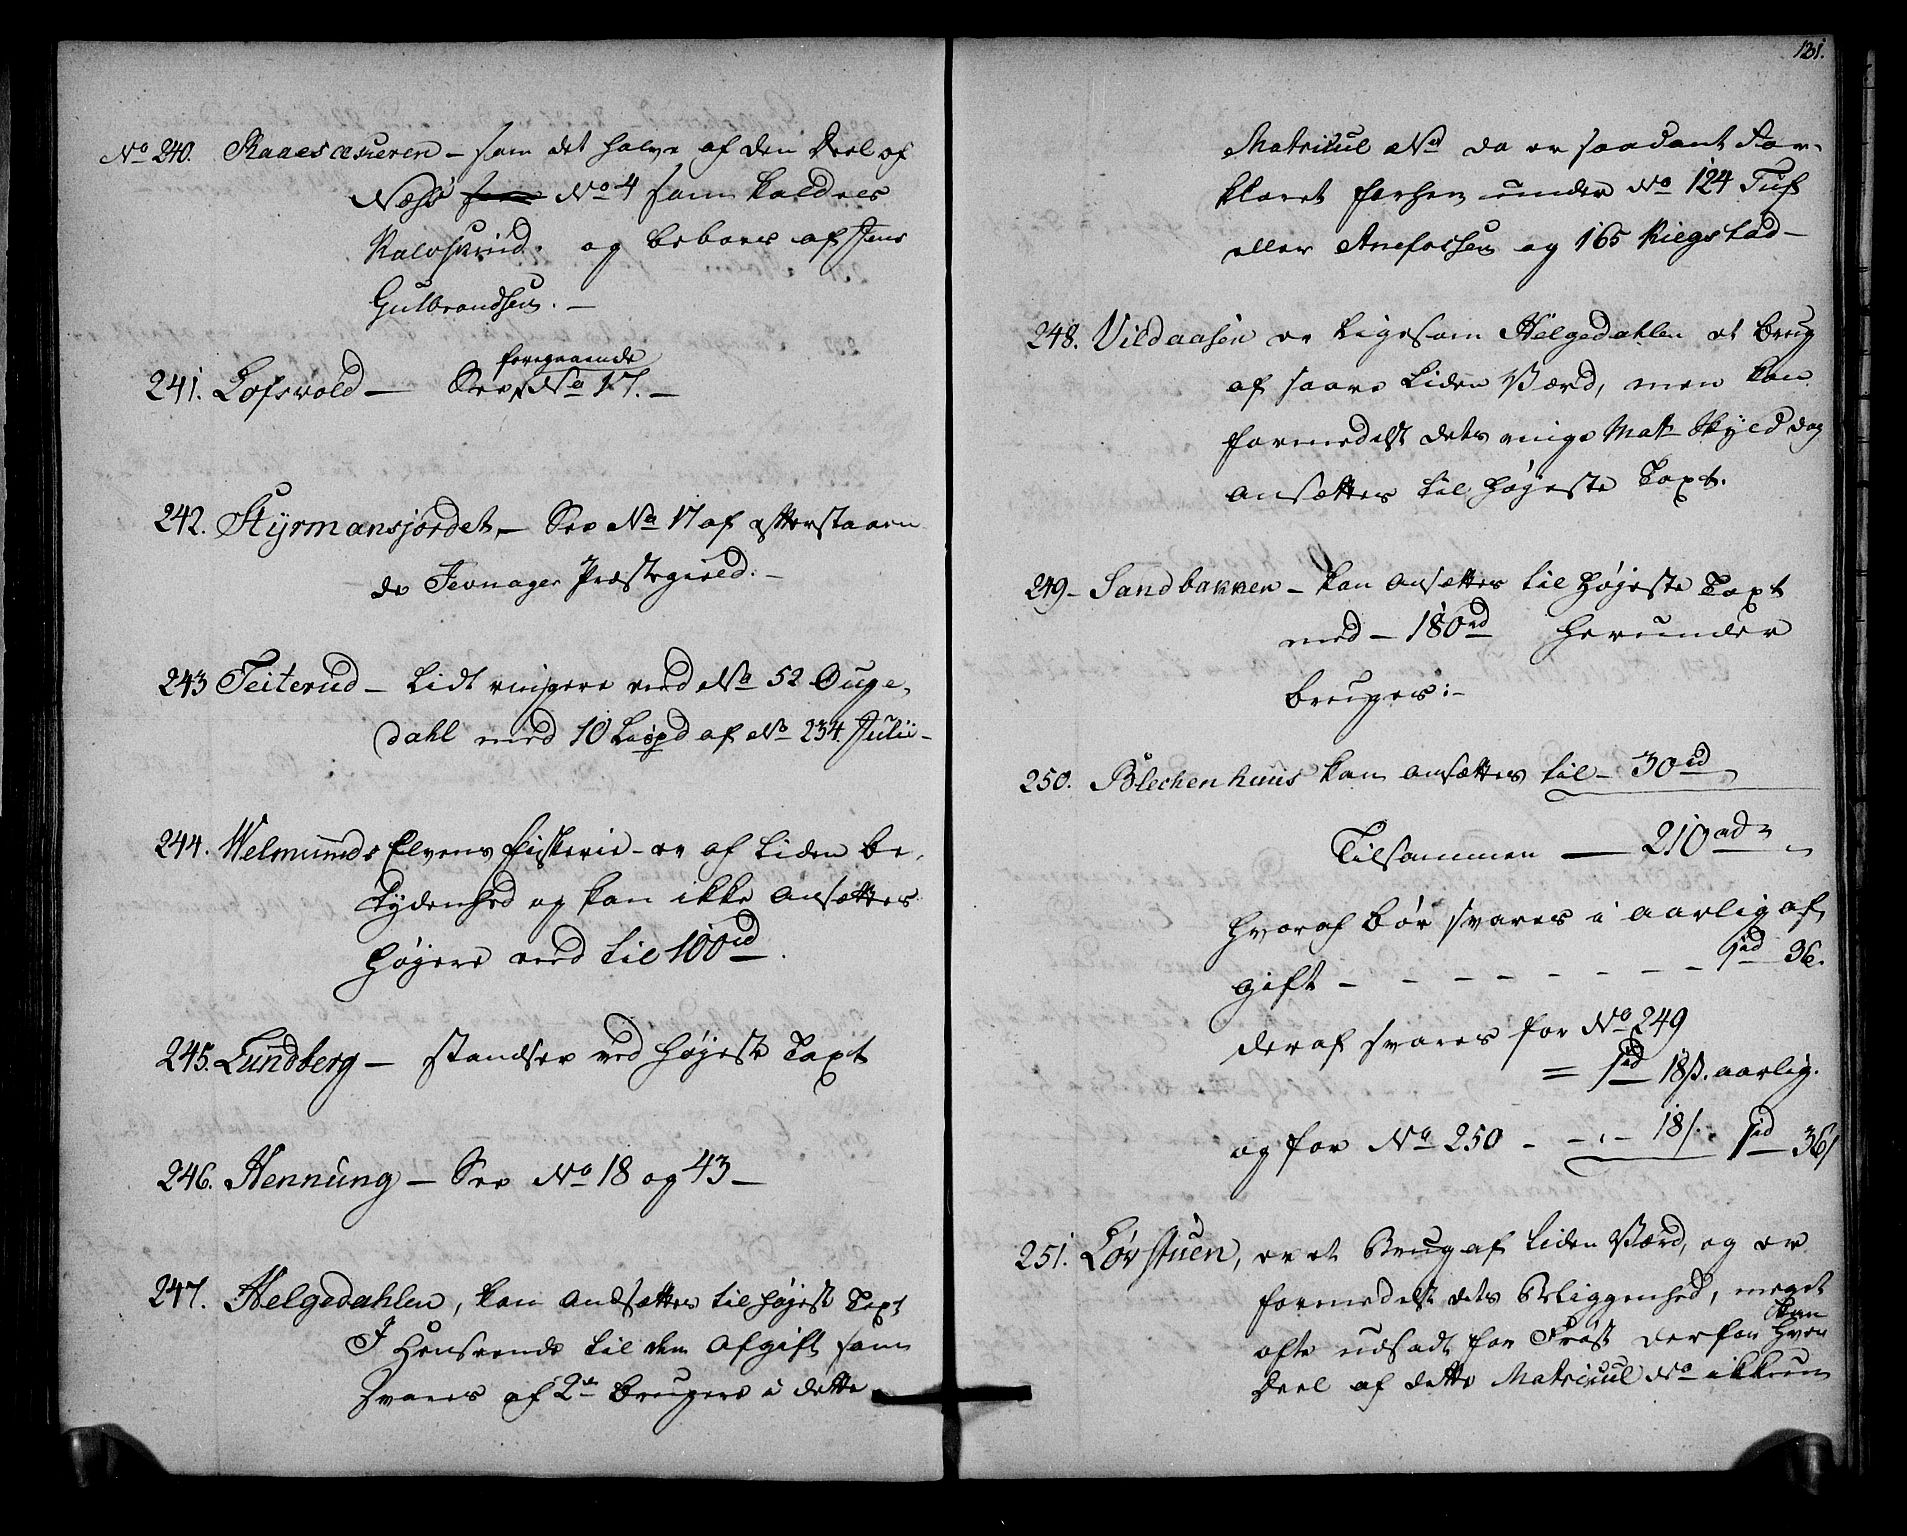 No 240. Raaesaskeren – som det halve af den Deel af
Næss No 4 som kaldes
Kalvsrud. og beboes af Jens
Gulbrandsen. –
foregaaende
241. Lofsvold – See No 17. –
242. Styrmansjordet, – See No 17 af efterstaaen
de Jevnager Præstegield. –
243 Teiterud – Lidt ringere end No 52 Ouge,
dahl med 10 Lispd af No 234. Julii –
244. Welmunds Elvens fiskerie – er af liden be,
tydenhed og kan ikke ansættes
højere end til 100 rd.
245. Lundberg – standser ved højeste Taxt
246. Hennung – See No 18 og 43 –
247. Helgedahlen, kan andsættes til højest Taxt
I Henseende til den Afgift som
svares af 2de brugere i dette
131.
Matricul No da er saadant For-
klaret forhen under No 124 Tuf
eller Anefossen og 165 Kiegstad –
248. Vildaasen er ligesom Helgedahlen et brug
af saare liden Værd, men kan
formedelst dets ringe Mat: Skyld dog
ansættes til højeste Taxt.
249 – Sandbakken – kan ansættes til højeste Taxt
med – 180 rd herunder
bruges: –
250. Blechenhuus kan ansættes til – 30 rd
Tilsammen — 210 rd
hvoraf bør svares i aarlig af
gift – – – – – – – – 1 rd 36.
deraf svares for No 249
= 1 rd 18 s. aarlig.
og for No 250 - – „ – 18 s. 1 rd 36 s
251. Lørstuen, er et Brug af liden Værd, og er
formedelst dets Beliggenhed, meget
kan
ofte udsadt for Frost derfor hver
Deel af dette Matricul No ikkun